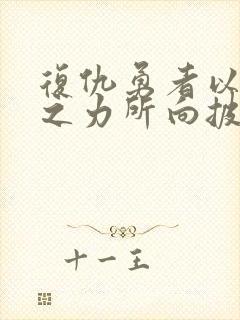 復仇勇者以
之力所向披
十一王